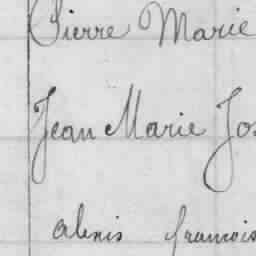 Pierre Marie
Jean Marie Jos
alexis francois